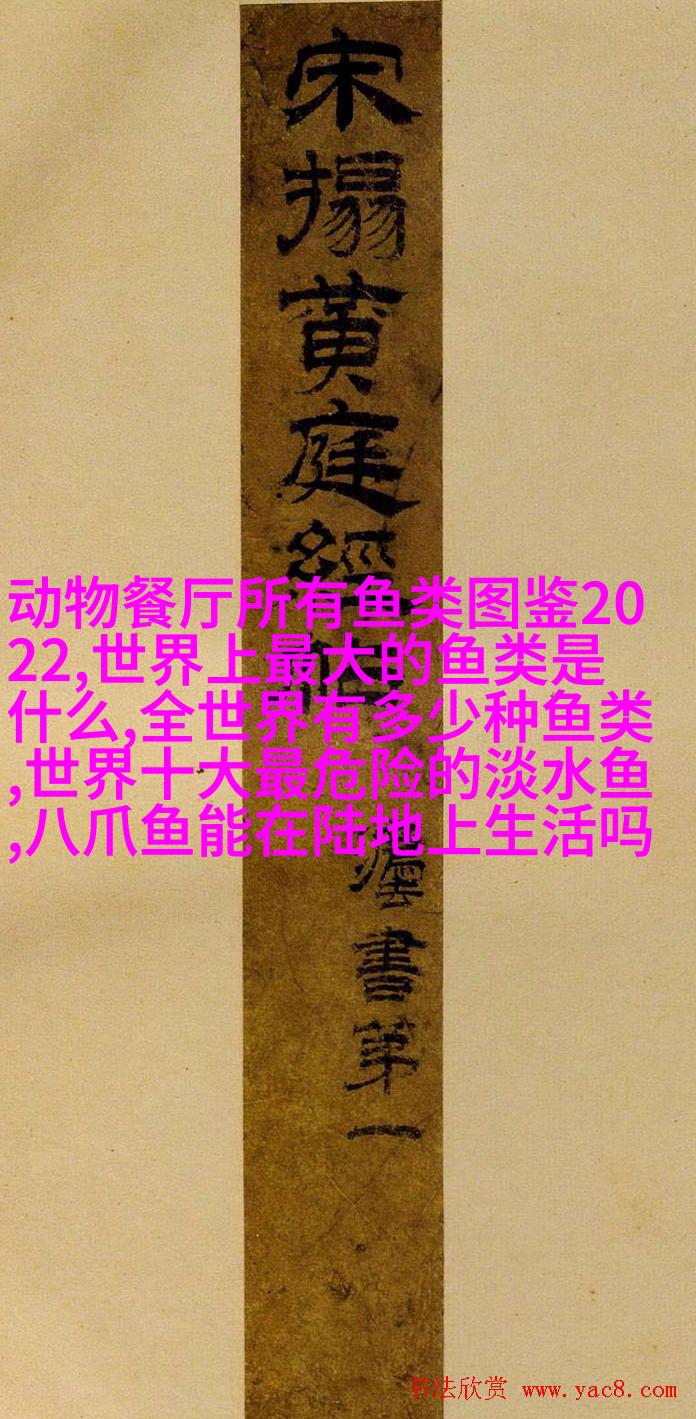 宋搨黄庭經
書第一
动物餐厅所有鱼类图鉴20
22,世界上最大的鱼类是
什么,全世界有多少种鱼类
,世界十大最危险的淡水鱼
,八爪鱼能在陆地上生活吗
书法欣赏 www.yac8.com